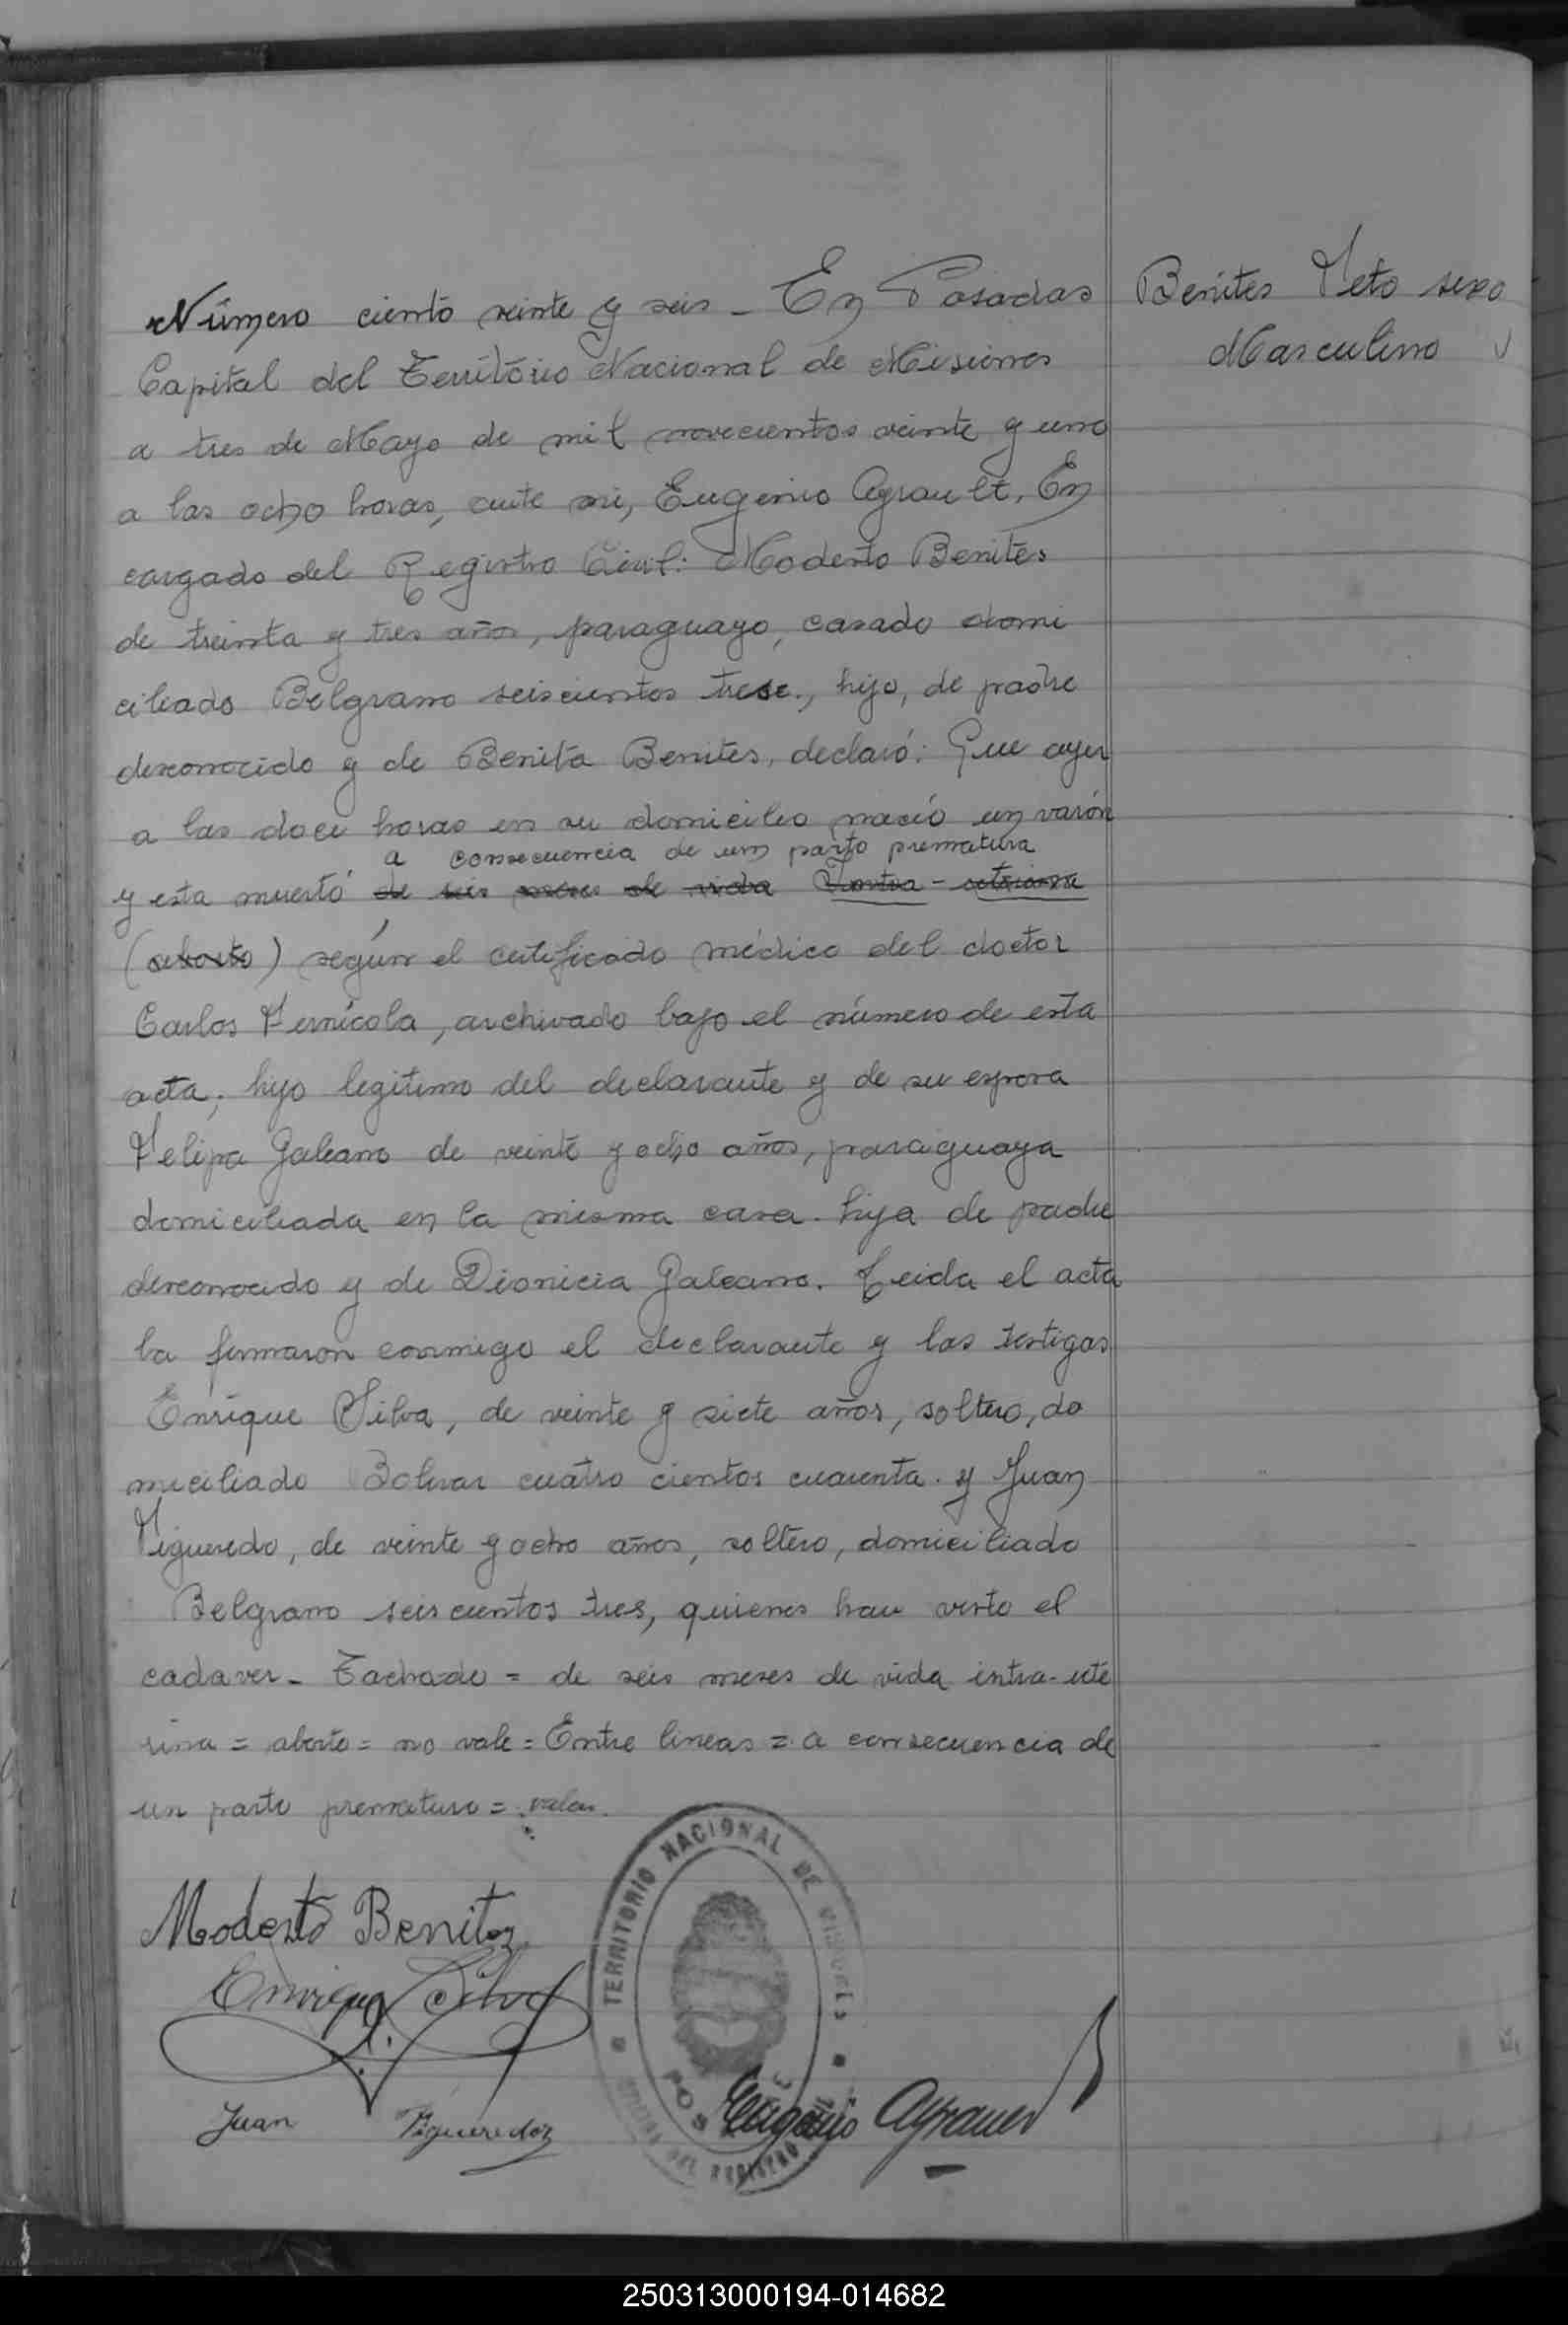 Número ciento veinte y seis - En Posadas
Capital del Territorio Nacional de Misiones
a tres de Mayo de mil novecientos veinte y uno
a las ocho horas, ante mi, Eugenio Ayrault, En
cargado del Registro Civil: Modesto Benites
de treinta y tres años, paraguayo, casado domi
ciliado Belgrano seiscientos trece, hijo, de padre
desconocido y de Benita Benites, declaró: Que ayer
a las doce horas en su domicilio nació un varón
a consecuencia de un parto prematura
y esta muerto de seis meses de vida Intra-uterina
(aborto) según el certificado médico del doctor
Carlos Fernícola, archivado bajo el número de esta
acta; hijo legitimo del declarante y de su esposa
Felipa Galeano de veinte y ocho años, paraguaya
domiciliada en la misma casa. hija de padre
desconocido y de Dionicia Galeano. Leida el acta
la firmaron conmigo el declarante y los testigos
Enrique Silva, de veinte y siete años, soltero, do
miciliado Bolivar cuatro cientos cuarenta. y Juan
Figueredo, de veinte y ocho años, soltero, domiciliado
Belgrano seis cientos tres, quienes han visto el
cadaver - Tachado = de seis meses de vida intra-ute
rina = aborto = no vale = Entre lineas = a consecuencia de
un parto prematuro = valen.
Benites Feto sexo
Masculino
Modesto Benitez
Enrique Silva
Juan Figueredoz
Eugenio Ayrault
TERRITORIO NACIONAL DE MISIONES
250313000194-014682